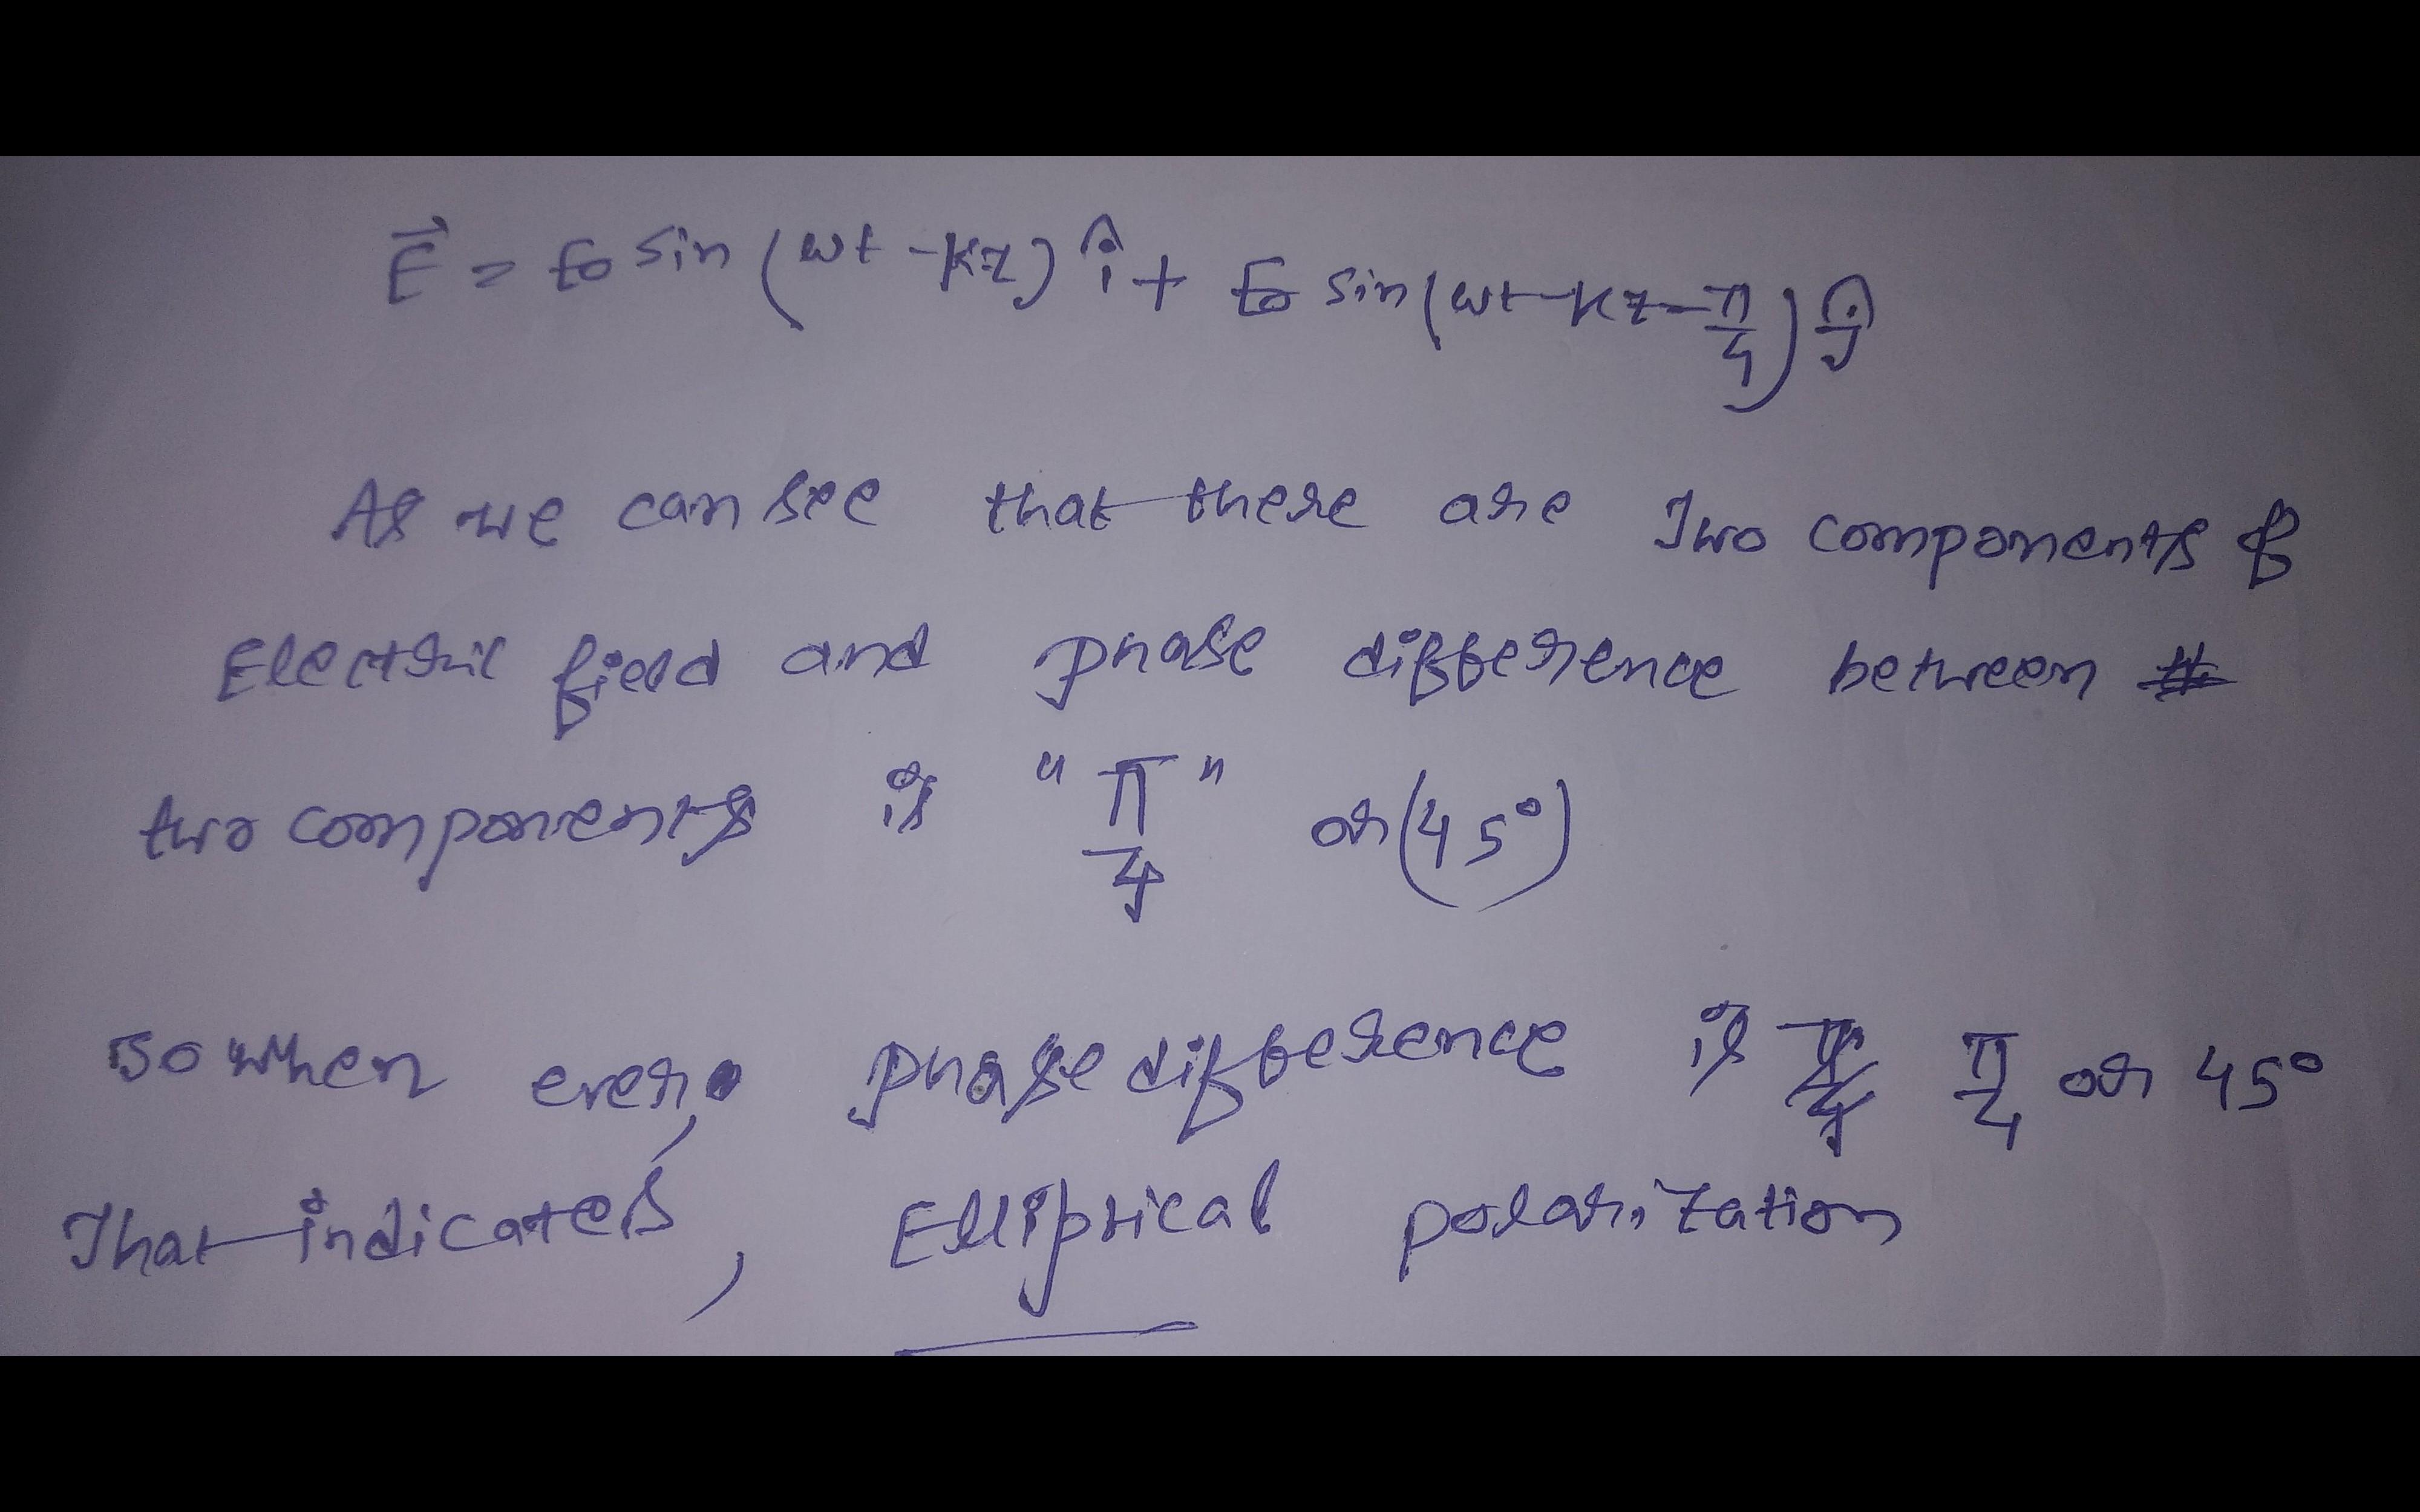 E⃗ = E₀ sin (ωt - Kz) î + E₀ sin (ωt - Kz - π/4) ĵ
As we can see that there are Two components of
Electric field and phase difference between
two components is "π/4" or (45°)
so when ever, phase difference is π/4 or 45°
That indicates, Elliptical polarization